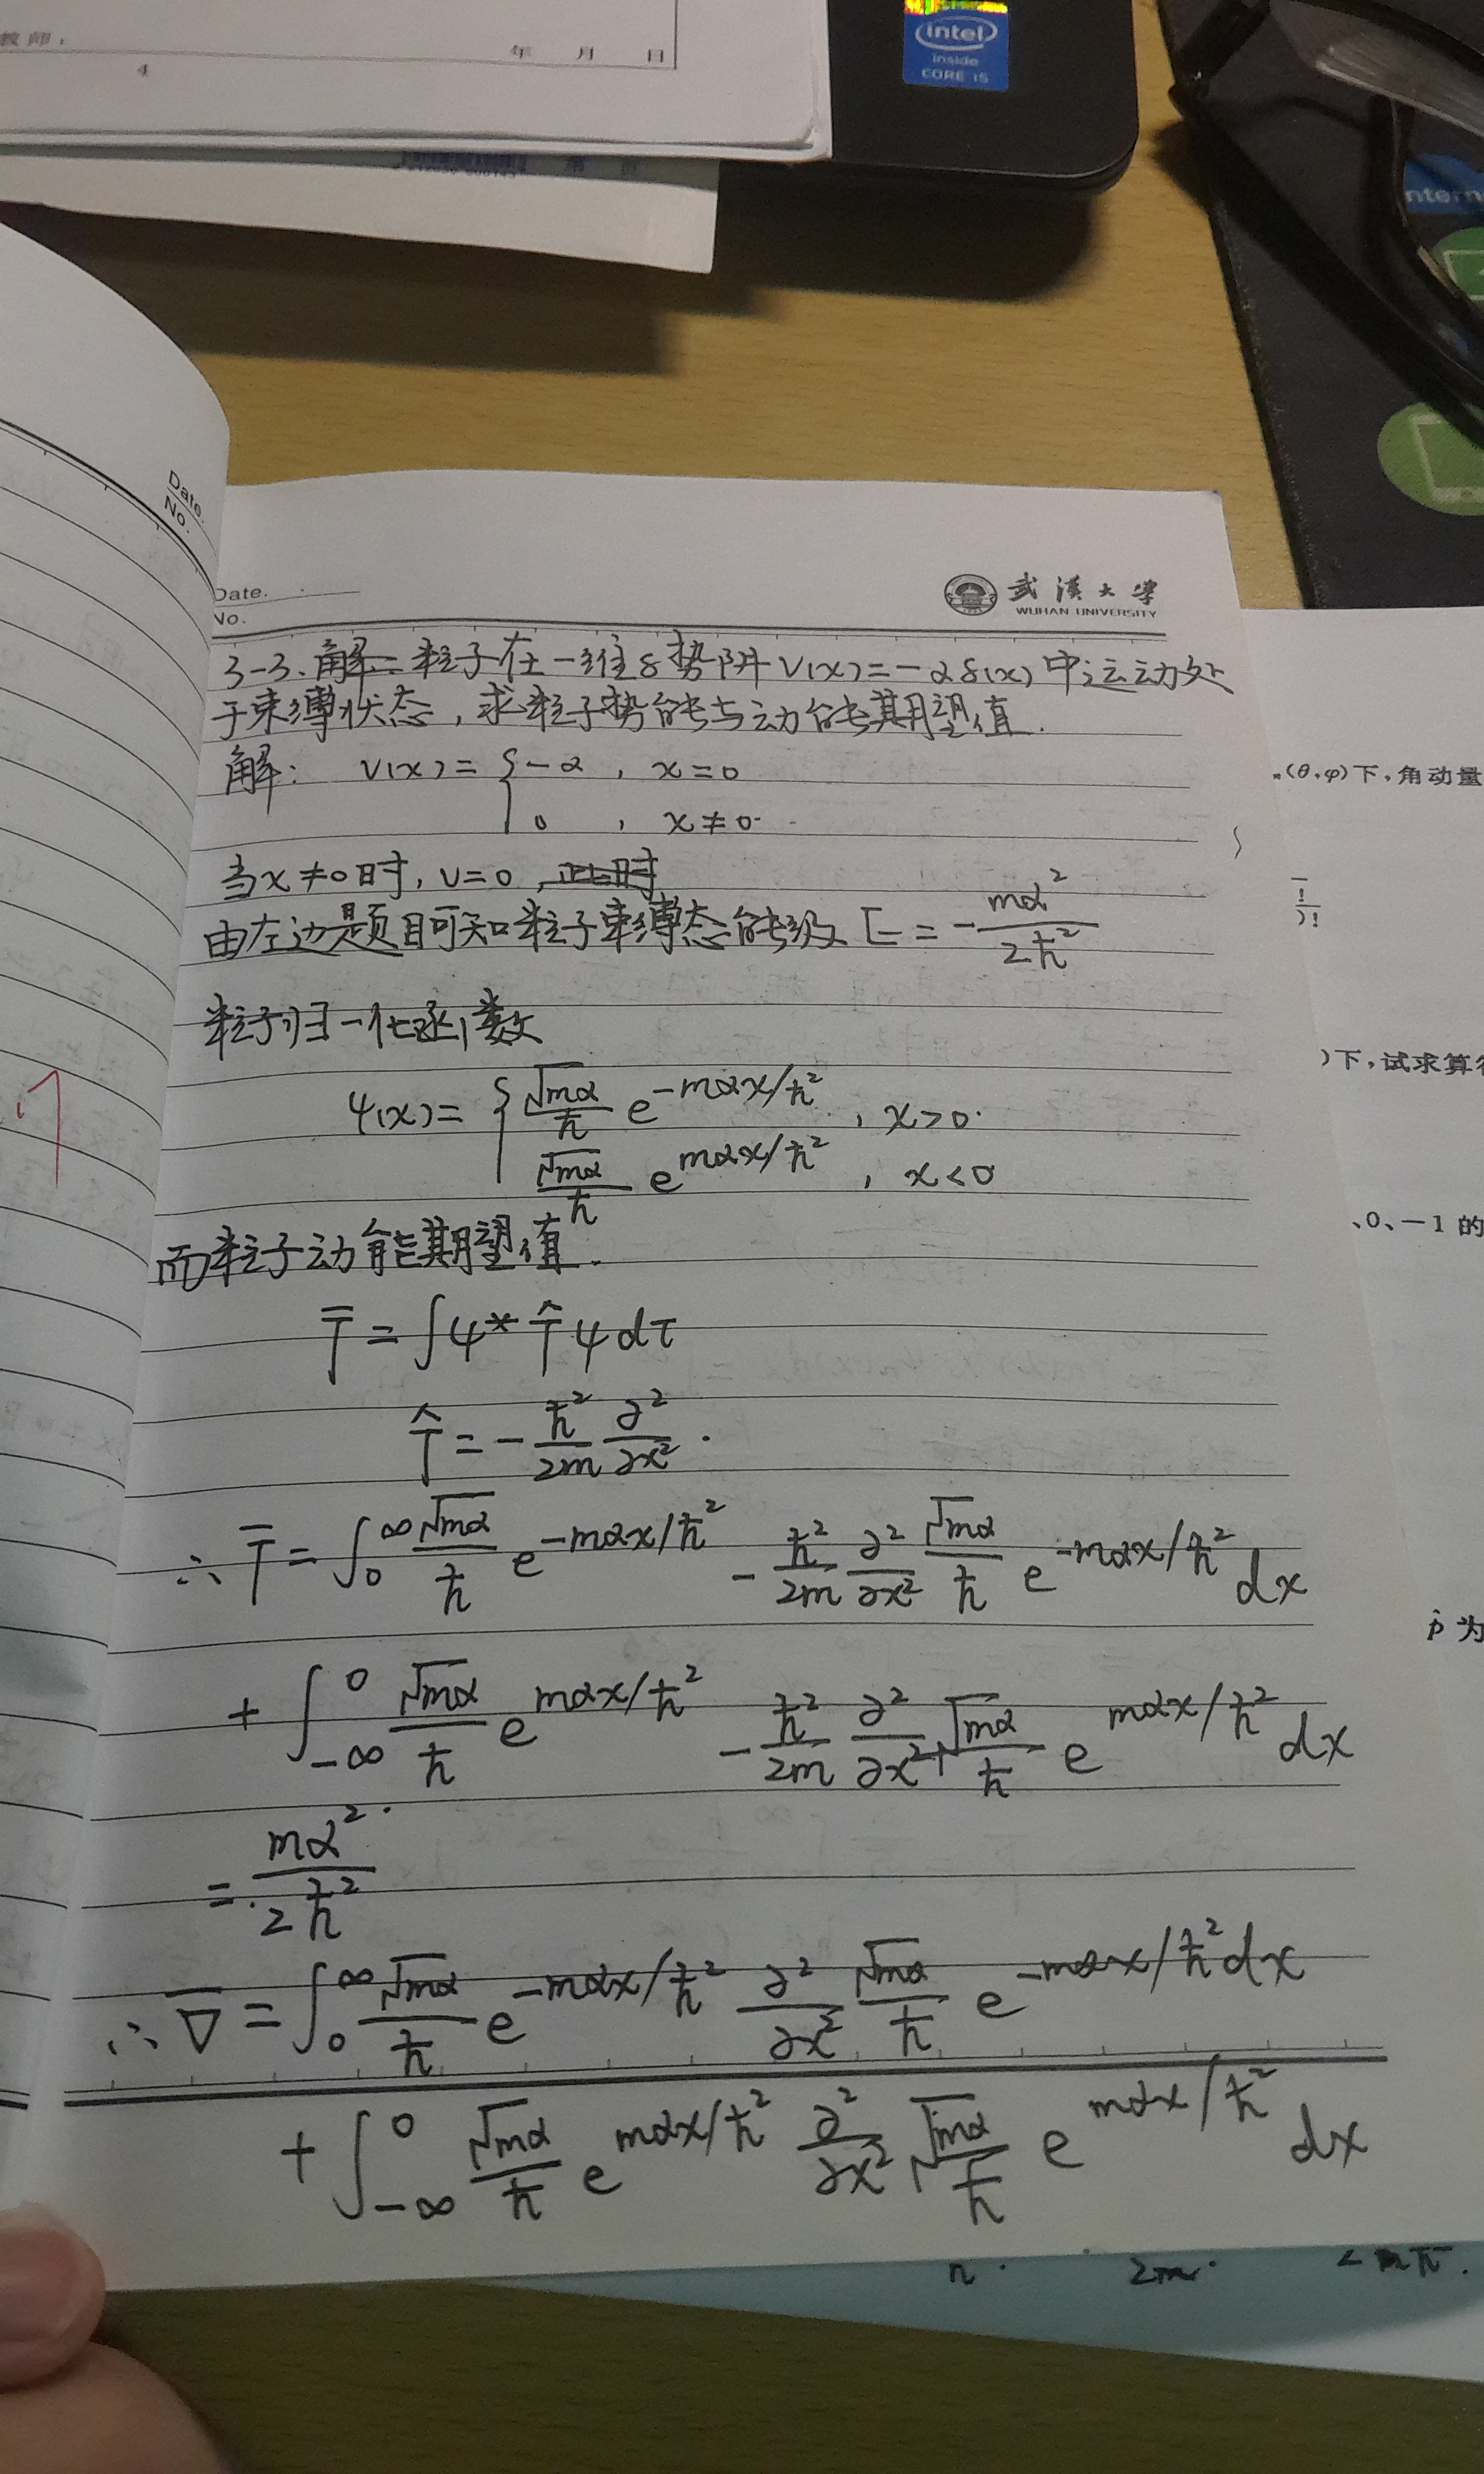 教师:
年 月 日
4
intel
inside
CORE i5
Date.
No.
Date.
No.
武汉大学
WUHAN UNIVERSITY
3-3. 解: 粒子在一维δ势阱 V(x)=-αδ(x) 中运动处
于束缚状态,求粒子势能与动能期望值.
解: V(x)= { -α , x=0
0 , x≠0.
当x≠0时, V=0 , 此时
由左边题目可知粒子束缚态能级 E = -mα²/2ħ²
粒子归一化函数
ψ(x)= { √mα/ħ e^{-mαx/ħ²} , x>0.
√mα/ħ e^{mαx/ħ²} , x<0
而粒子动能期望值.
T̄ = ∫ψ* T̂ ψ dτ
T̂ = -ħ²/2m ∂²/∂x² .
∴ T̄ = ∫₀^∞ √mα/ħ e^{-mαx/ħ²} -ħ²/2m ∂²/∂x² √mα/ħ e^{-mαx/ħ²} dx
+ ∫_{-∞}^0 √mα/ħ e^{mαx/ħ²} -ħ²/2m ∂²/∂x² √mα/ħ e^{mαx/ħ²} dx
= mα²/2ħ²
∴ V̄ = ∫₀^∞ √mα/ħ e^{-mαx/ħ²} ∂²/∂x² √mα/ħ e^{-mαx/ħ²} dx
+ ∫_{-∞}^0 √mα/ħ e^{mαx/ħ²} ∂²/∂x² √mα/ħ e^{mαx/ħ²} dx
(θ,φ)下,角动量
)下,试求算符
、0、-1 的
p̂ 为
2m.